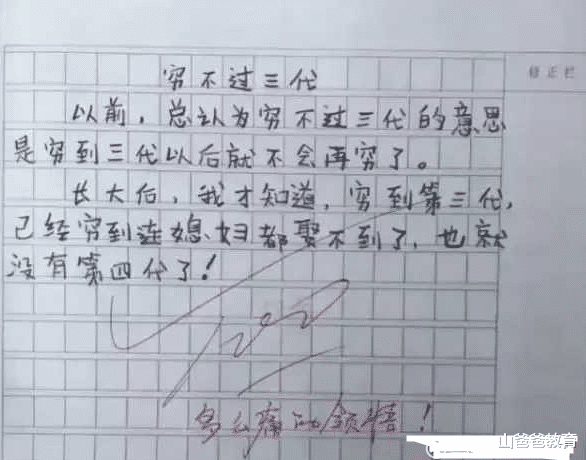 修正栏
穷不过三代
以前，总认为穷不过三代的意思
是穷到三代以后就不会再穷了。
长大后，我才知道，穷到第三代，
已经穷到连媳妇都娶不到了，也就
没有第四代了！
100
多么痛的领悟！
山爸爸教育